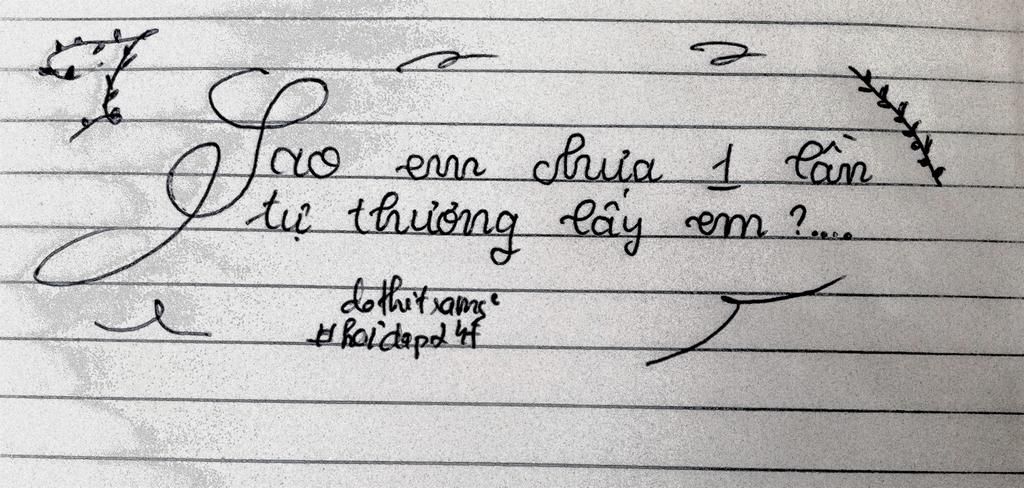 Sao em chưa 1 lần
tự thương lấy em ?....
dothitxamge
#hoidapd4f